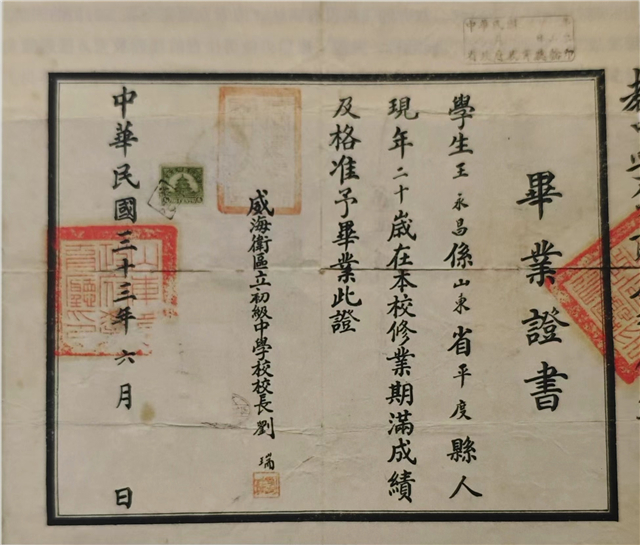 畢業證書
學生王永昌係山東省平度縣人
現年二十歲在本校修業期滿成績
及格准予畢業此證
威海衛區立初級中學校校長劉瑞
中華民國三十三年六月 日
中華民國